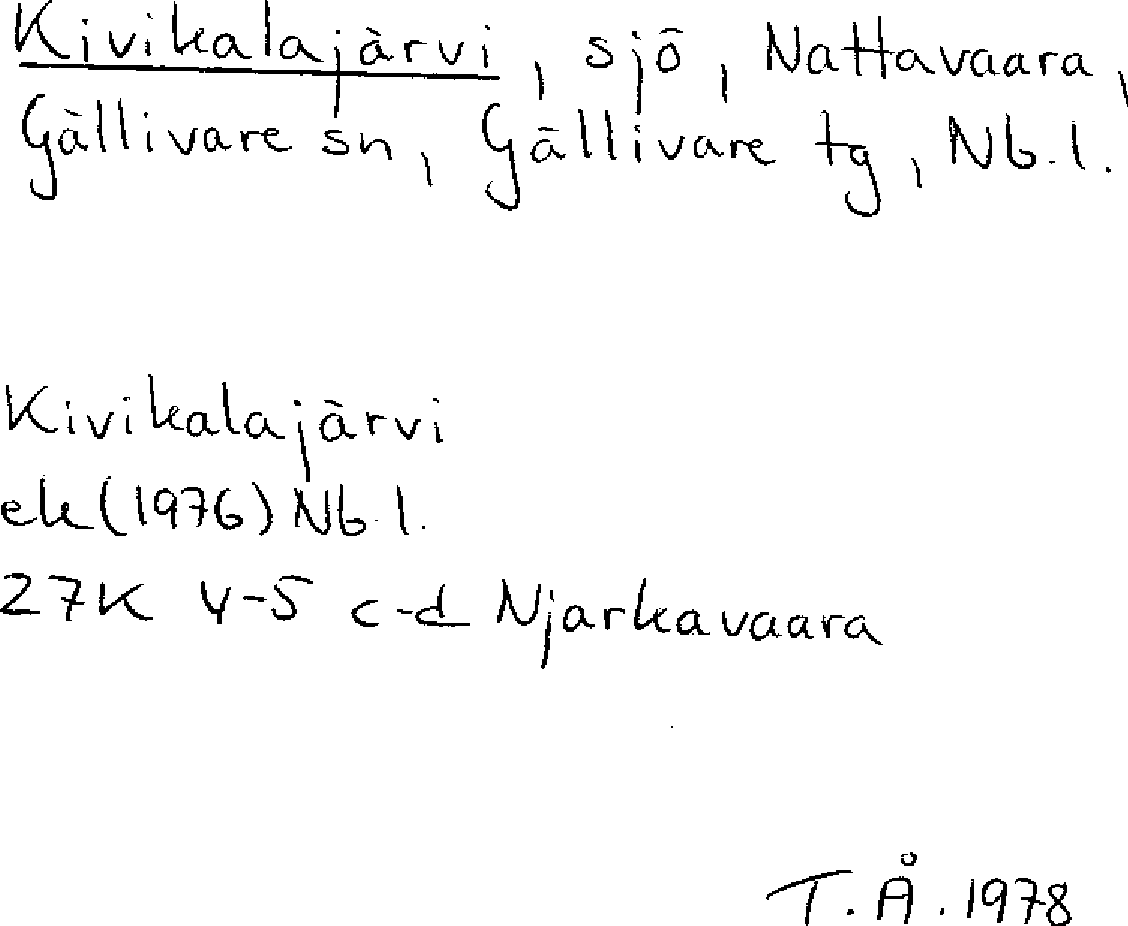 Kivikalajärvi, sjö, Nattavaara,
Gällivare sn, Gällivare tg, Nb.l.
Kivikalajärvi
ek (1976) Nb.l.
27K 4-5 c-d Njarkavaara
T.Å. 1978